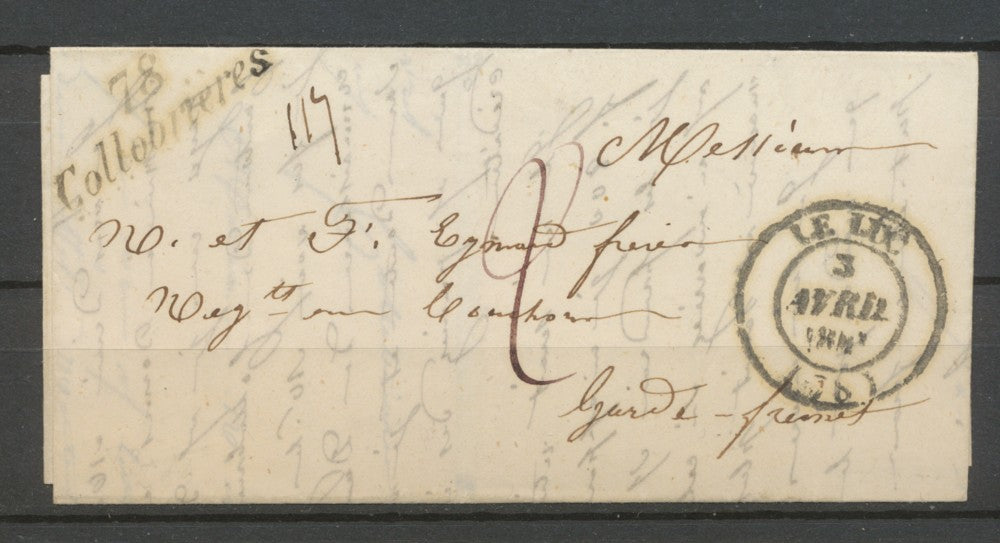 78
Collobrières
117
Messieurs
N. et F. Eymard frères
Neg.ts en bouchons
Garde-freinet
LE LUC
3
AVRIL
(78)